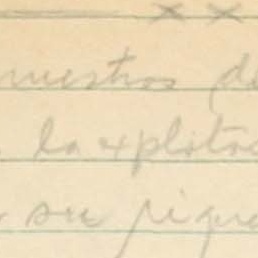 x x
nuestros de
la explota
su rique